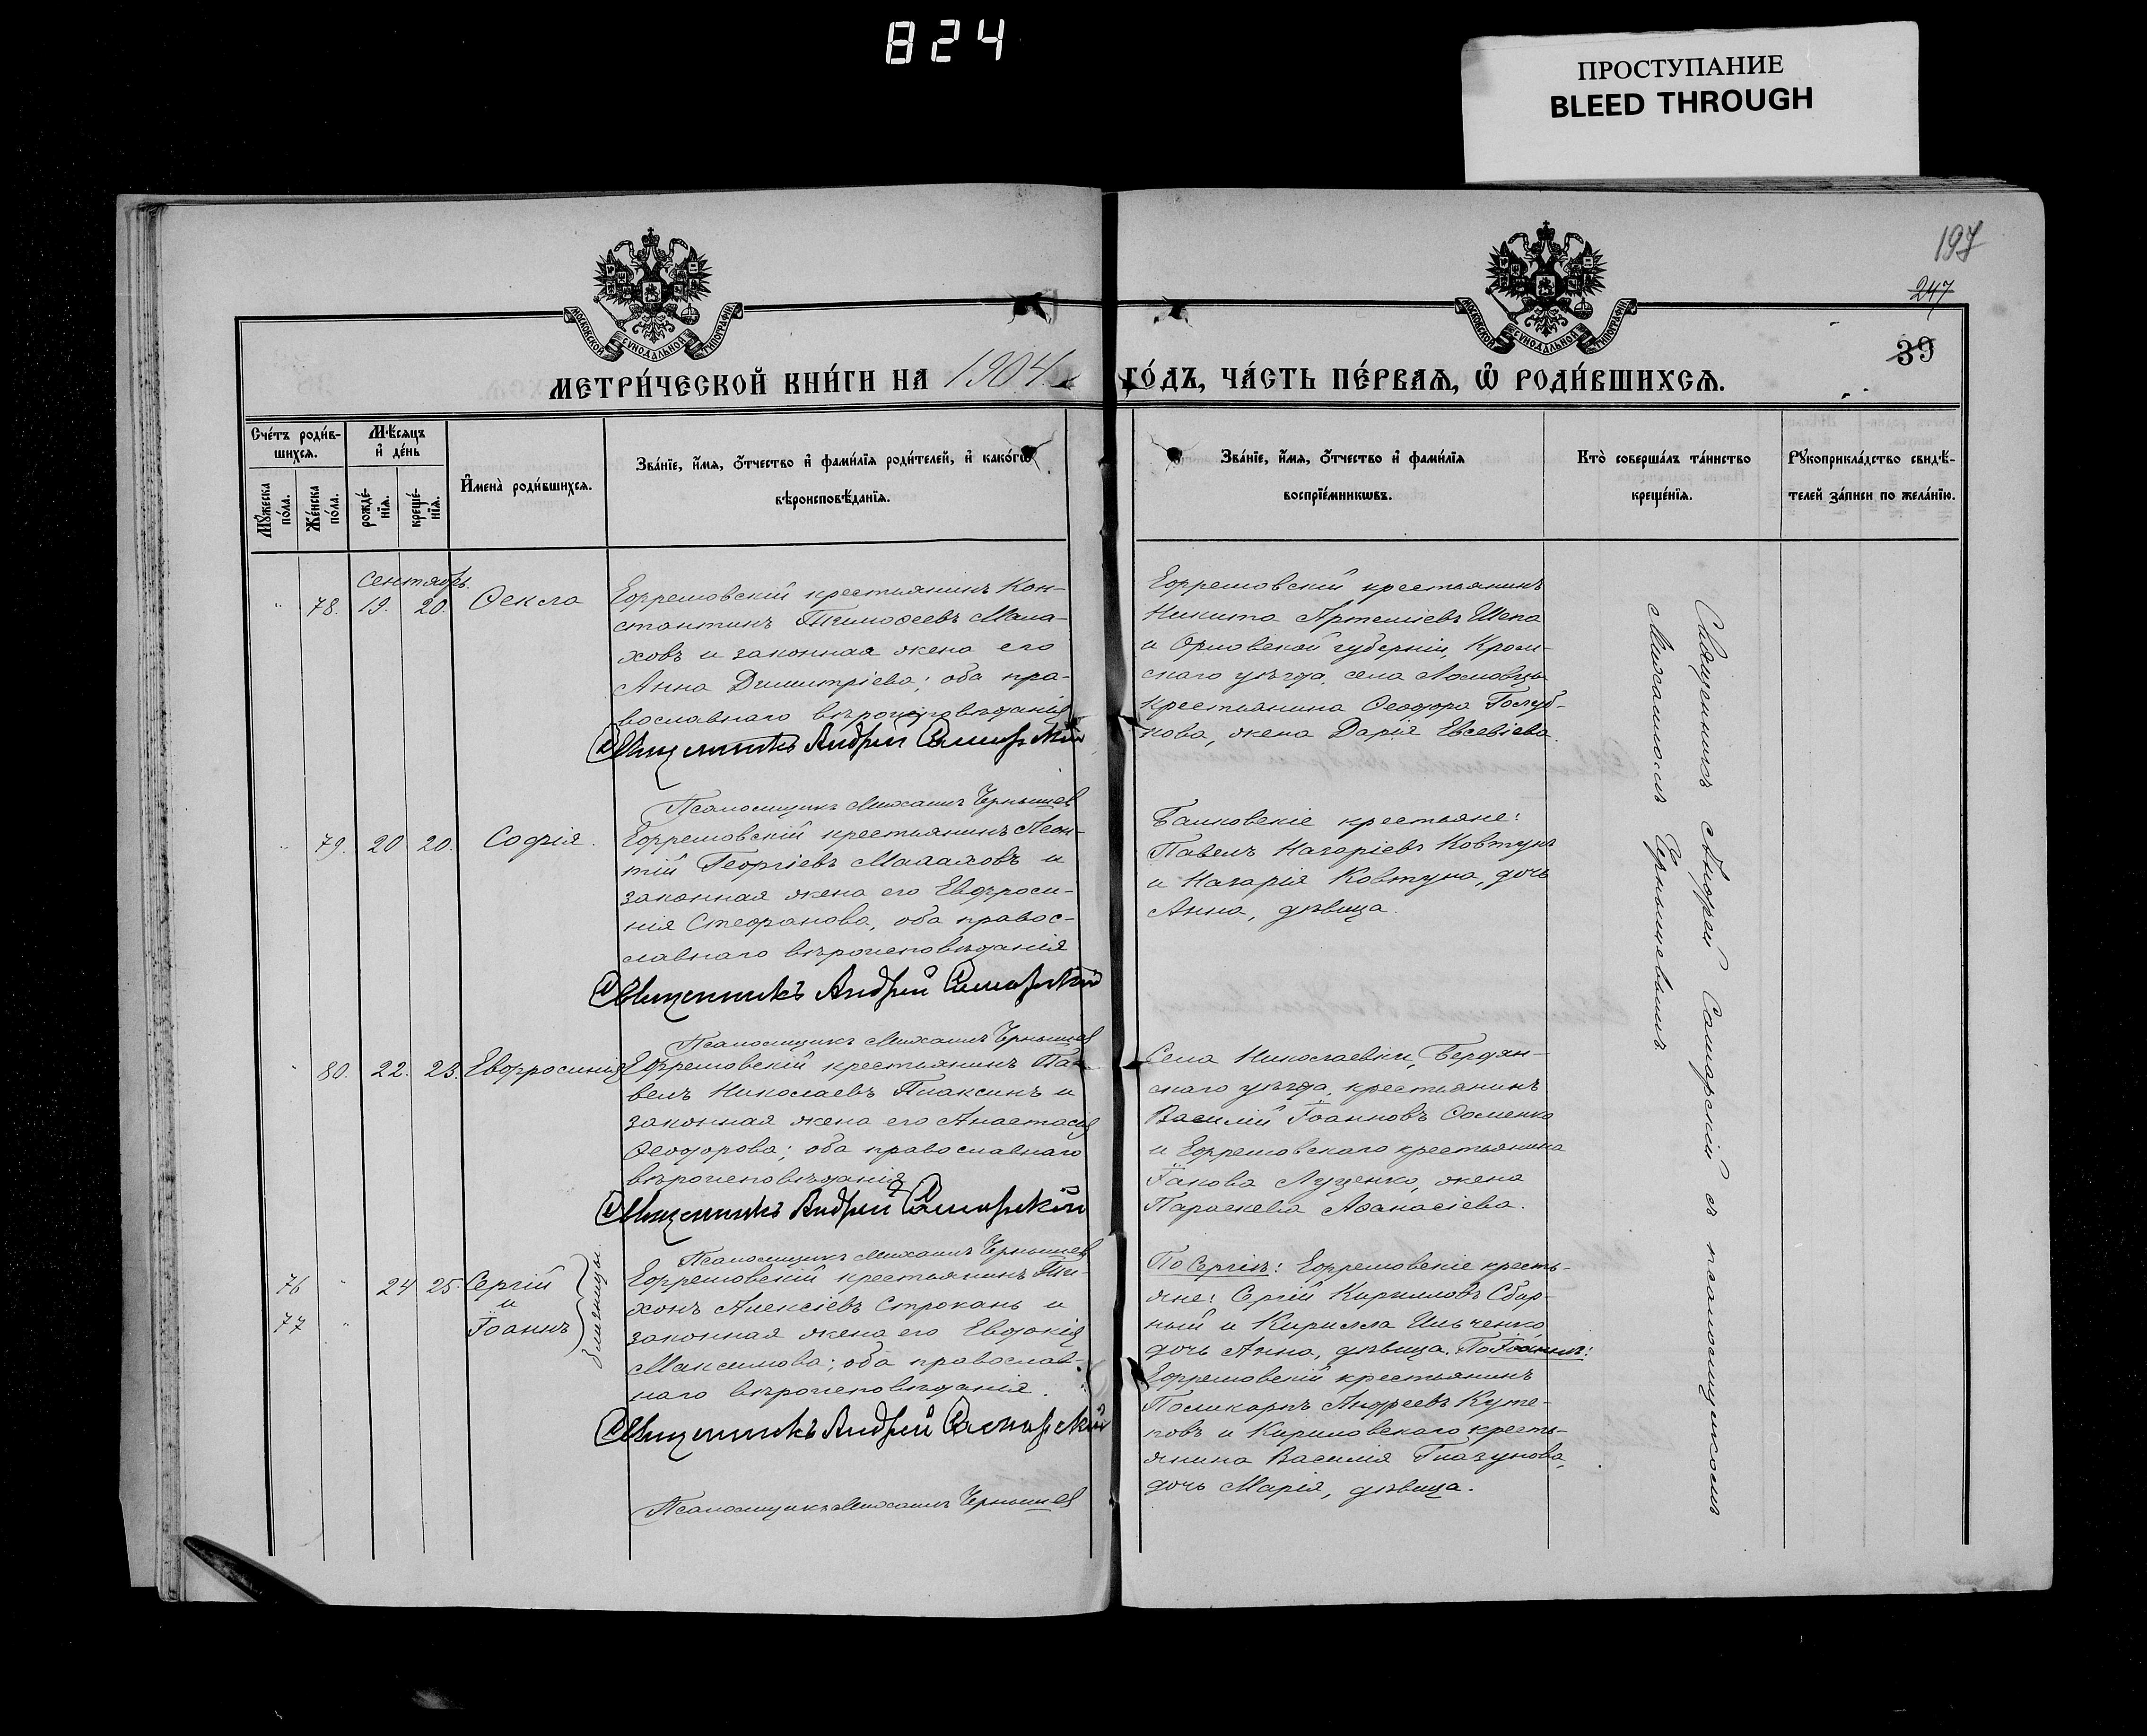 824
ПРОСТУПАНИЕ
BLEED THROUGH
197
247
39
МОСКОВСКОЙ СѴНОДАЛЬНОЙ ТИПОГРАФІИ
МОСКОВСКОЙ СѴНОДАЛЬНОЙ ТИПОГРАФІИ
МЕТРИ́ЧЕСКОЙ КНИ́ГИ НА 1904 ГО́ДЪ, ЧА́СТЬ ПЕ́РВАѦ, Ѡ҆ РОДИ́ВШИХСѦ.
Сче́тъ роди́в-
шихсѧ.
Мꙋ́жеска по́ла.
Же́нска по́ла.
Мѣ́сѧцъ
и҆ де́нь
рожде́-
нїѧ.
креще́-
нїѧ.
И҆мена̀ роди́вшихсѧ.
Зва́нїе, и҆́мѧ, ѻ҆́тчество и҆ фами́лїѧ роди́телей, и҆ како́гѡ
вѣроисповѣ́данїѧ.
Зва́нїе, и҆́мѧ, ѻ҆́тчество и҆ фами́лїѧ
воспрїе́мникѡвъ.
Кто̀ соверша́лъ та́инство
креще́нїѧ.
Рꙋкоприкла́дство свидѣ́-
телей за́писи по жела́нїю.
Сентябрь.
" 78. 19. 20. Ѳекла
Ефремовскій крестьянинъ Кон-
стантинъ Тимоѳеевъ Мала-
ховъ и законная жена его
Анна Димитріева; оба пра-
вославнаго вѣроисповѣданія
Священникъ Андрей Самарскій
Псаломщикъ Михаилъ Чернышев
Ефремовскій крестьянинъ
Никита Артеміевъ Шепа
и Орловской губерніи, Кром-
скаго уѣзда, села Ломовца
крестьянина Ѳеодора Голуб-
кова, жена Дарія Евсевіева.
" 79. 20 20. Софія.
Ефремовскій крестьянинъ Леон-
тій Георгіевъ Малаховъ и
законная жена его Евфроси-
нія Стефанова, оба правос-
лавнаго вѣроисповѣданія
Священникъ Андрей Самарскій
Псаломщикъ Михаилъ Чернышев
Балковскіе крестьяне:
Павелъ Назаріевъ Ковтунъ
и Назарія Ковтуна, дочь
Анна, дѣвица.
" 80. 22. 23. Евфросинія
Ефремовскій крестьянинъ Па-
велъ Николаевъ Плаксинъ и
законная жена его Анастасія
Ѳеодорова; оба православнаго
вѣроисповѣданія
Священникъ Андрей Самарскій
Псаломщикъ Михаилъ Чернышев
Села Николаевки, Бердян-
скаго уѣзда, крестьянинъ
Василій Іоанновъ Соменко
и Ефремовскаго крестьянина
Іакова Луценко, жена
Параскева Аѳанасіева.
76 " 24 25. Сергій
и
77 " Іоаннъ
близнецы.
Ефремовскій крестьянинъ Ти-
хонъ Алексіевъ Строкань и
законная жена его Евдокія
Максимова; оба православ-
наго вѣроисповѣданія.
Священникъ Андрей Самарскій
Псаломщикъ Михаилъ Чернышев
По Сергіѣ: Ефремовскіе кресть-
яне: Сергій Кирилловъ Сбар-
ный и Кирилла Ильченко
дочь Анна, дѣвица. По Іоаннѣ:
Ефремовскій крестьянинъ
Поликарпъ Андреевъ Куте-
повъ и Кириловскаго кресть-
янина Василія Глазунова,
дочь Марія, дѣвица.
Священникъ Андрей Самарскій съ псаломщикомъ
Михаиломъ Чернышевымъ.